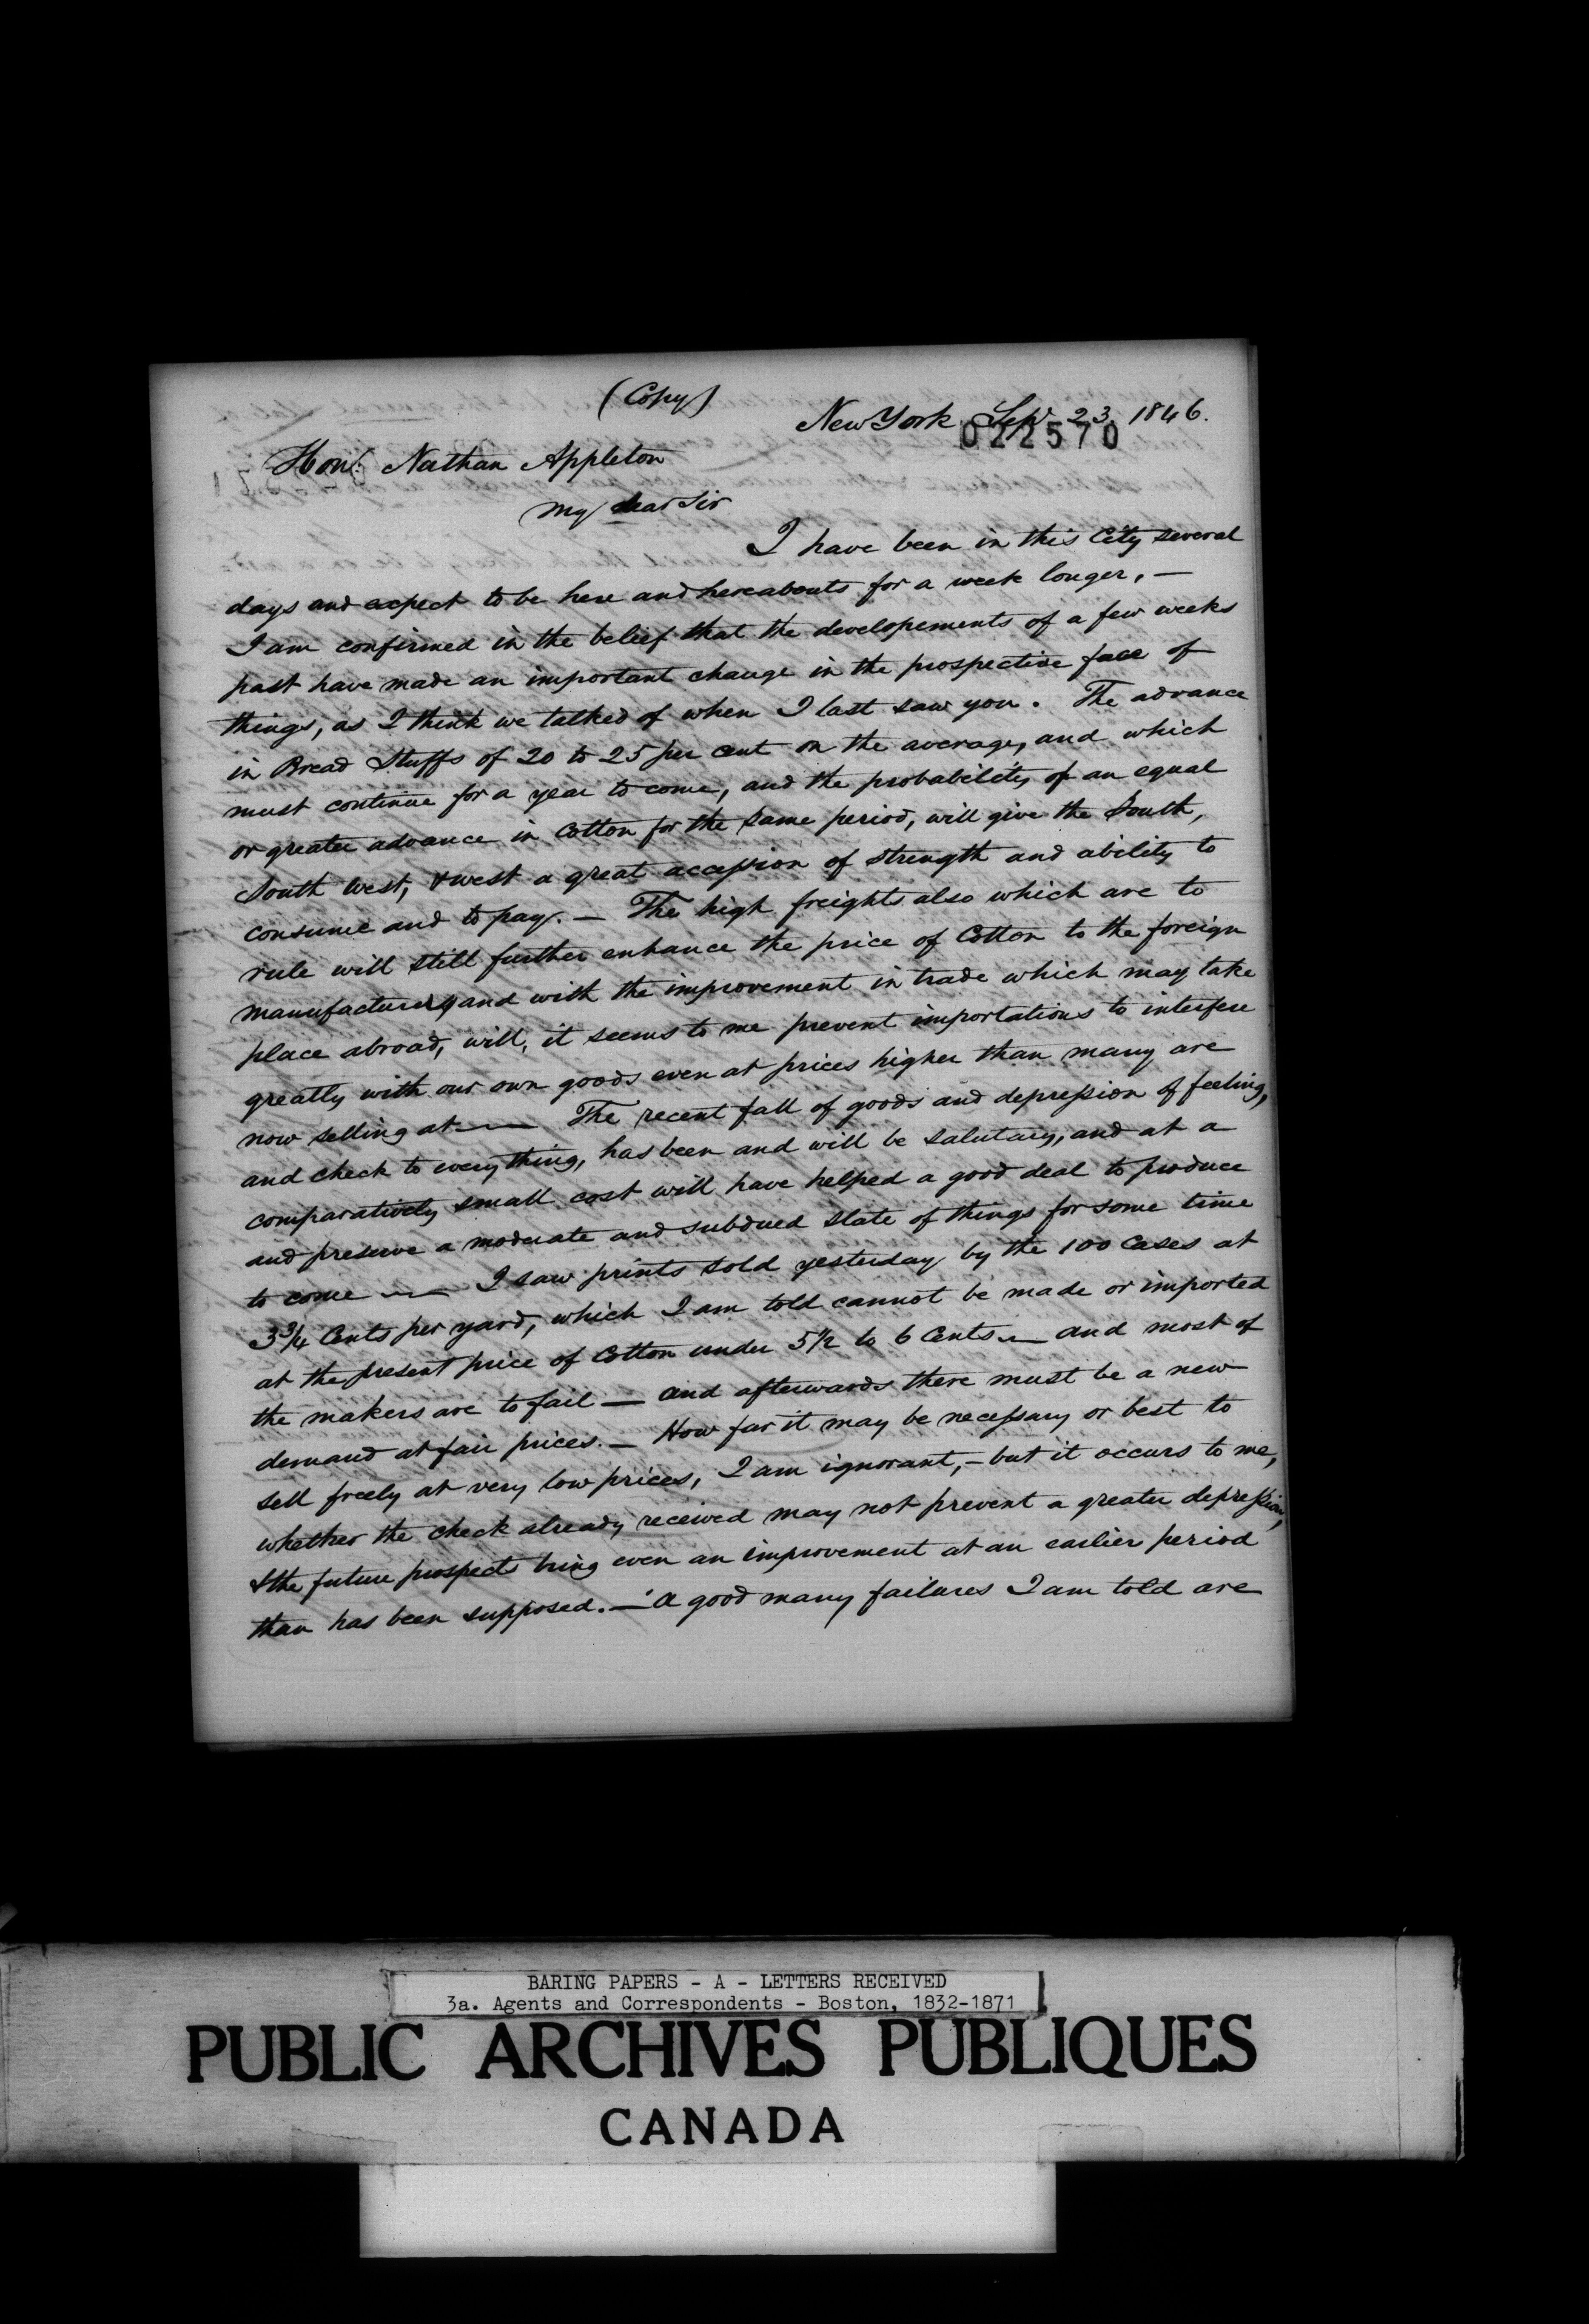 (Copy)
New York Sept 23, 1846.
022570
Honl. Nathan Appleton
My dear Sir
I have been in this City several
days and expect to be here and hereabouts for a week longer, —
I am confirmed in the belief that the developements of a few weeks
past have made an important change in the prospective face of
things, as I think we talked of when I last saw you. The advance
in Bread Stuffs of 20 to 25 per cent on the average, and which
must continue for a year to come, and the probability of an equal
or greater advance in Cotton for the same period, will give the South,
South West, & west a great accession of strength and ability to
consume and to pay. — The high freights also which are to
rule will still further enhance the price of Cotton to the foreign
manufacturer, and with the improvement in trade which may take
place abroad, will, it seems to me prevent importations to interfere
greatly with our own goods even at prices higher than many are
now selling at — The recent fall of goods and depression of feeling,
and check to every thing, has been and will be salutary, and at a
comparatively small cost will have helped a good deal to produce
and preserve a moderate and subdued state of things for some time
to come — I saw prints sold yesterday by the 100 Cases at
3¾ Cents per yard, which I am told cannot be made or imported
at the present price of Cotton under 5½ to 6 Cents — and most of
the makers are to fail — and afterwards there must be a new
demand at fair prices. — How far it may be necessary or best to
sell freely at very low prices, I am ignorant, — but it occurs to me,
whether the check already received may not prevent a greater depression,
& the future prospects bring even an improvement at an earlier period
than has been supposed. — A good many failures I am told are
BARING PAPERS - A - LETTERS RECEIVED
3a. Agents and Correspondents - Boston, 1832-1871
PUBLIC ARCHIVES PUBLIQUES
CANADA